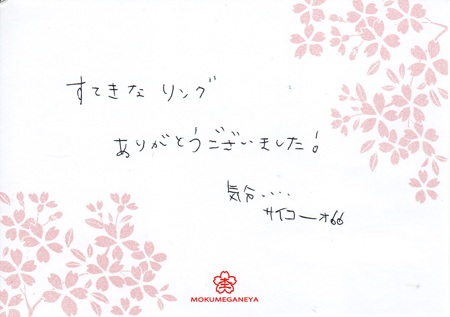 すてきな リング
ありがとうございました!
気分‥‥
サイコーオ
MOKUMEGANEYA